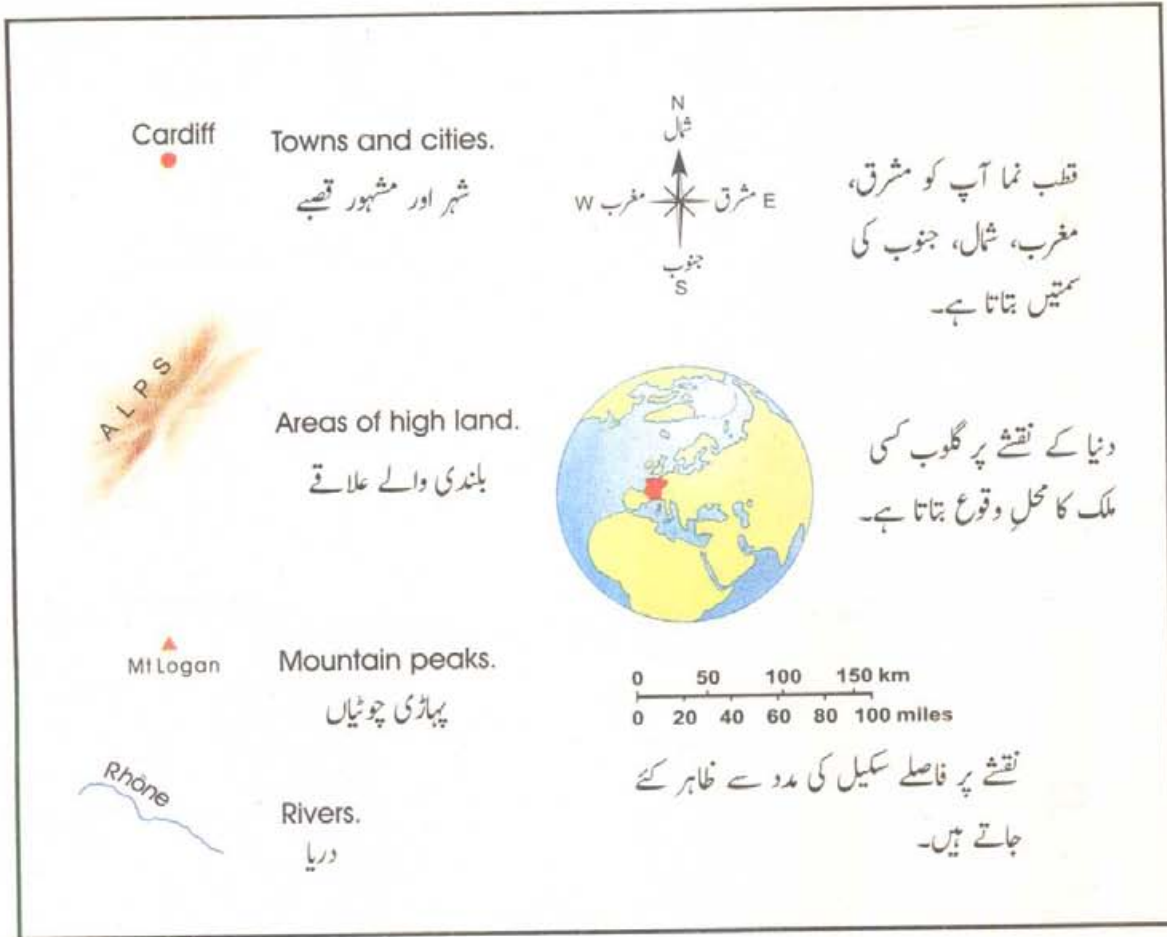 Cardiff
Towns and cities.
شہر اور مشہور قصبے
N
شمال
W مغرب مشرق E
جنوب
S
قطب نما آپ کو مشرق،
مغرب، شمال، جنوب کی
سمتیں بتاتا ہے۔
ALPS
Areas of high land.
بلندی والے علاقے
دنیا کے نقشے پر گلوب کسی
ملک کا محلِ وقوع بتاتا ہے۔
Mt Logan
Mountain peaks.
پہاڑی چوٹیاں
0 50 100 150 km
0 20 40 60 80 100 miles
نقشے پر فاصلے سکیل کی مدد سے ظاہر کئے
جاتے ہیں۔
Rhône
Rivers.
دریا